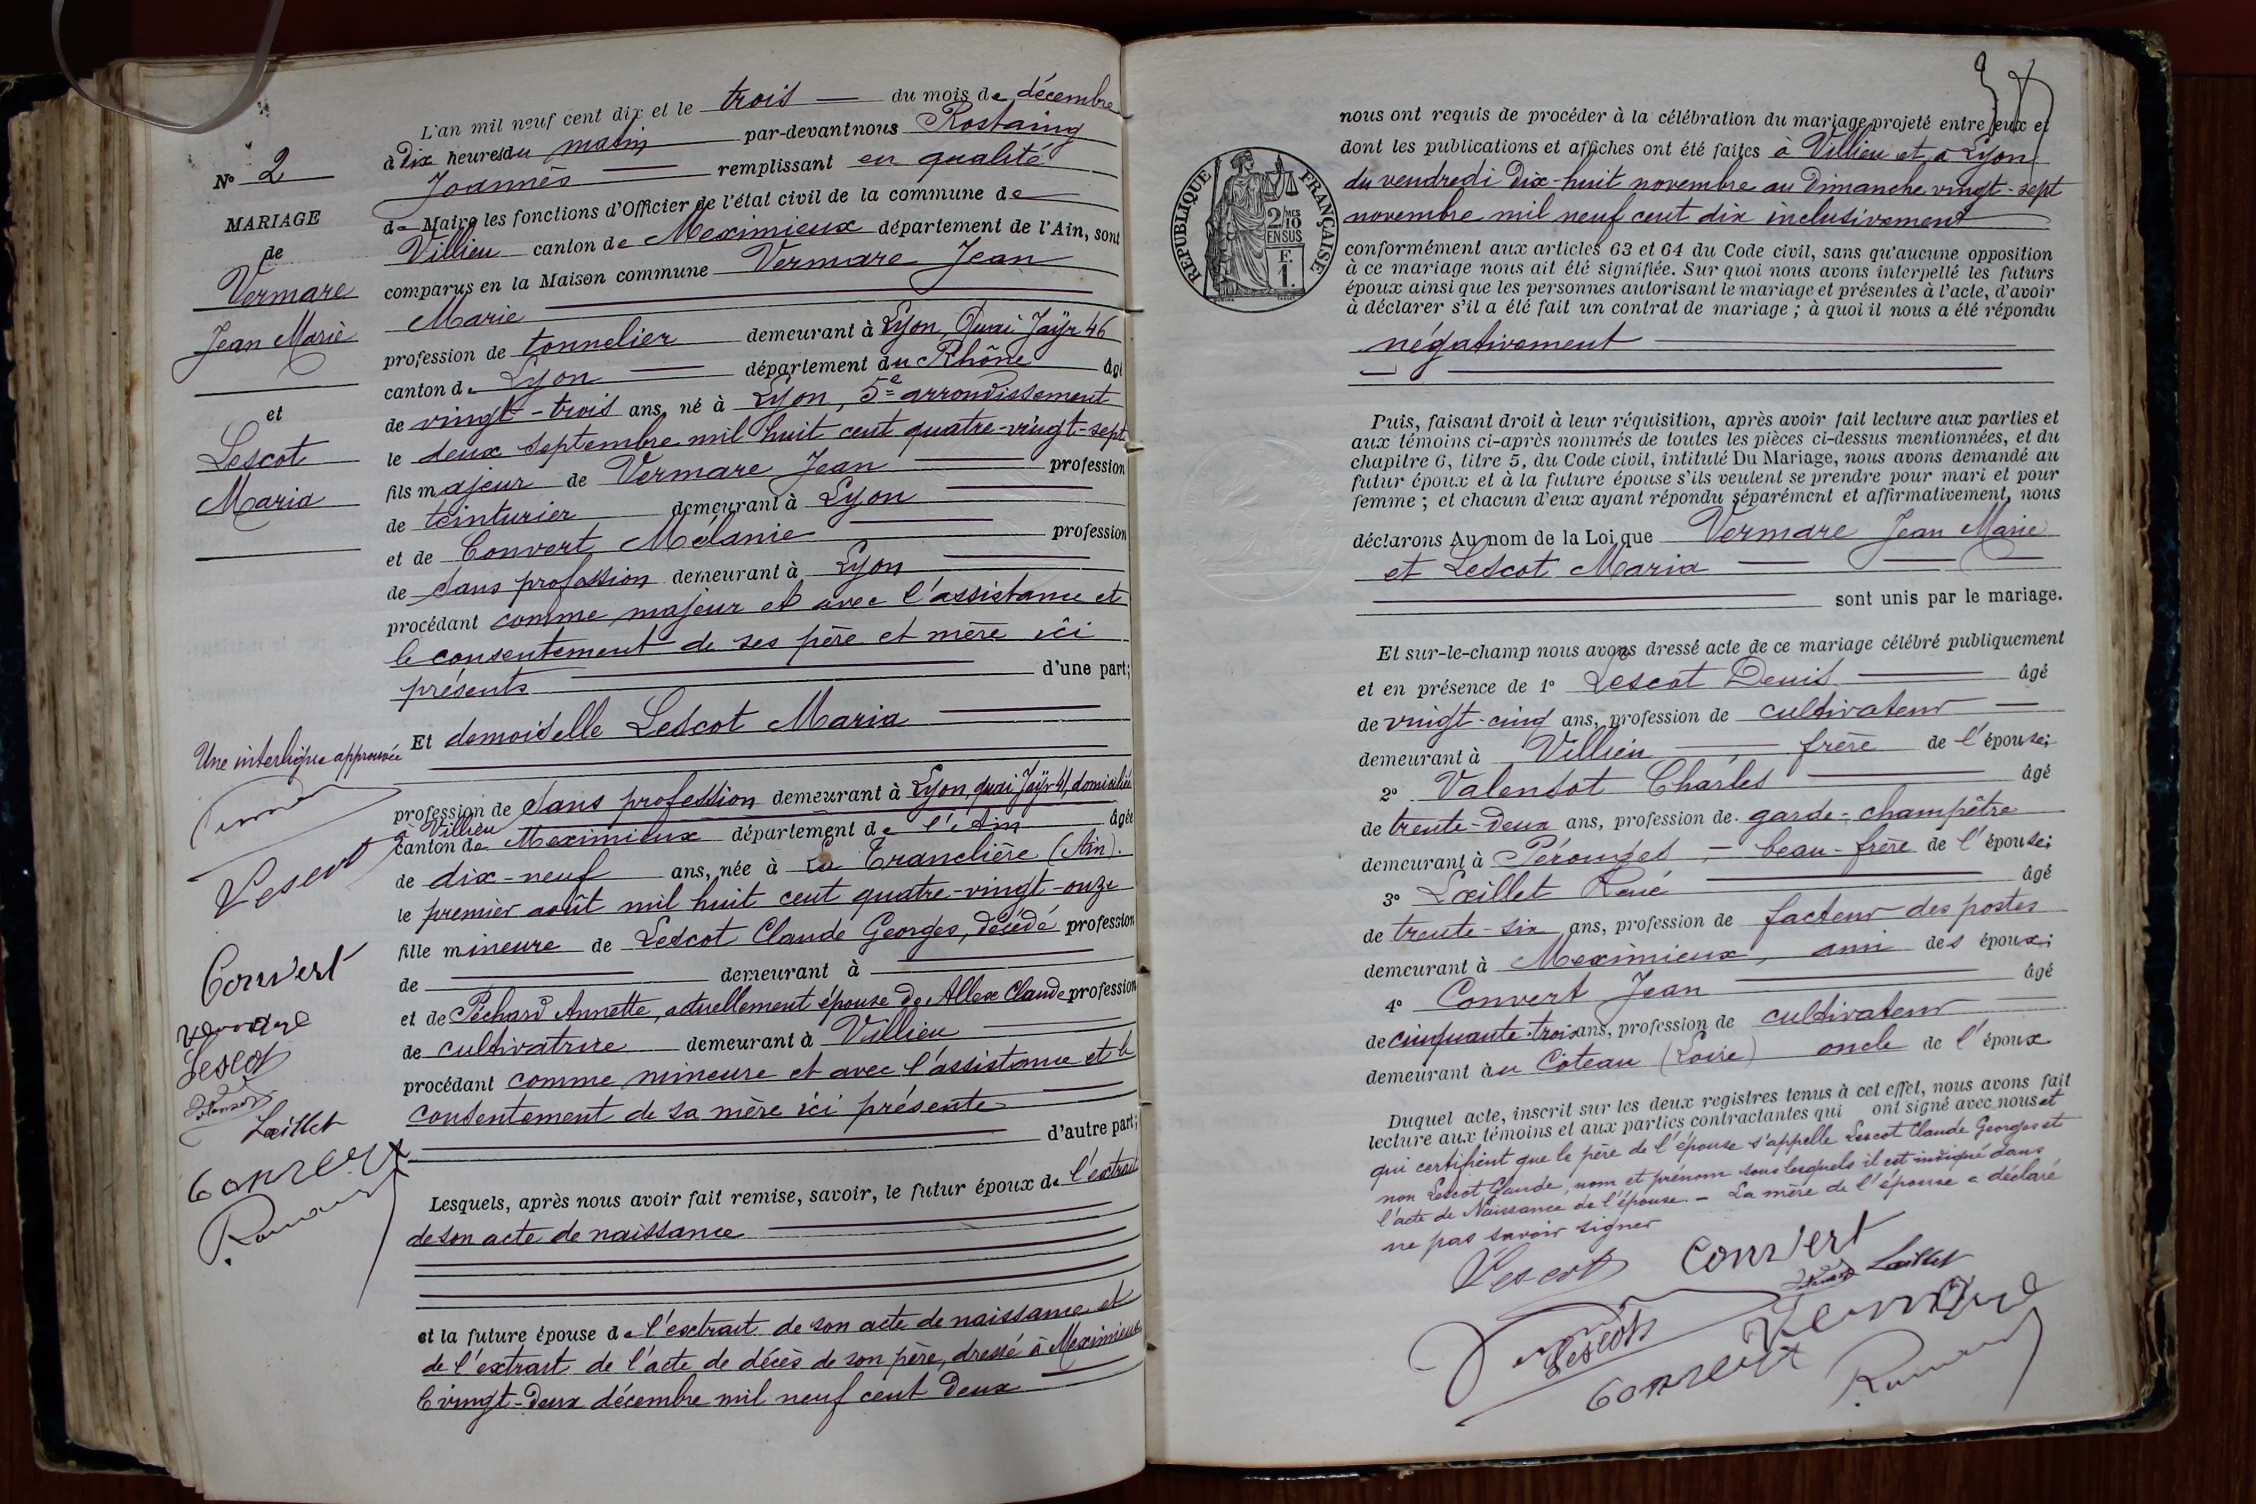 L'an mil neuf cent dix et le trois du mois de décembre
à Dix heures du matin par-devant nous Rostaing
Joannès remplissant en qualité
de Maire les fonctions d'Officier de l'état civil de la commune de
Villieu canton de Meximieux département de l'Ain, sont
comparus en la Maison commune Vermare Jean
Marie
profession de tonnelier demeurant à Lyon, Quai Jaÿr 46
canton de Lyon département du Rhône âgé
de vingt-trois ans, né à Lyon, 5e arrondissement
le deux septembre mil huit cent quatre-vingt-sept
fils majeur de Vermare Jean profession
de teinturier demeurant à Lyon
et de Convert Mélanie profession
de sans profession demeurant à Lyon
procédant comme majeur et avec l'assistance et
le consentement de ses père et mère ici
présents d'une part;
Et demoiselle Lescot Maria
profession de sans profession demeurant à Lyon, quai Jaÿr 41, domiciliée
à Villieu
canton de Meximieux département de l'Ain âgée
de dix-neuf ans, née à La Tranclière (Ain).
le premier août mil huit cent quatre-vingt-onze
fille mineure de Lescot Claude Georges, décédé profession
de demeurant à
et de Péchard Annette, actuellement épouse de Allex Claude profession
de cultivatrice demeurant à Villieu
procédant comme mineure et avec l'assistance et le
consentement de sa mère ici présente
d'autre part;
Lesquels, après nous avoir fait remise, savoir, le futur époux de l'extrait
de son acte de naissance
et la future épouse de l'extrait de son acte de naissance et
de l'extrait de l'acte de décès de son père, dressé à Meximieux
le vingt-deux décembre mil neuf cent deux
N° 2
MARIAGE
de
Vermare
Jean Marie
et
Lescot
Maria
Une interligne approuvée
Lescot
Convert
Vermare
Lescot
Lœillet
Convert
nous ont requis de procéder à la célébration du mariage projeté entre eux et
dont les publications et affiches ont été faites à Villieu et à Lyon
du vendredi dix-huit novembre au Dimanche vingt-sept
novembre mil neuf cent dix inclusivement
RÉPUBLIQUE FRANÇAISE
2/10 MES
EN SUS
F.
1.
conformément aux articles 63 et 64 du Code civil, sans qu'aucune opposition
à ce mariage nous ait été signifiée. Sur quoi nous avons interpellé les futurs
époux ainsi que les personnes autorisant le mariage et présentes à l'acte, d'avoir
à déclarer s'il a été fait un contrat de mariage; à quoi il nous a été répondu
négativement
Puis, faisant droit à leur réquisition, après avoir fait lecture aux parties et
aux témoins ci-après nommés de toutes les pièces ci-dessus mentionnées, et du
chapitre 6, titre 5, du Code civil, intitulé Du Mariage, nous avons demandé au
futur époux et à la future épouse s'ils veulent se prendre pour mari et pour
femme; et chacun d'eux ayant répondu séparément et affirmativement, nous
déclarons Au nom de la Loi que Vermare Jean Marie
et Lescot Maria
sont unis par le mariage.
Et sur-le-champ nous avons dressé acte de ce mariage célébré publiquement
et en présence de 1° Lescot Denis âgé
de vingt-cinq ans, profession de cultivateur
demeurant à Villieu, frère de l'épouse;
2° Valensot Charles âgé
de trente-deux ans, profession de garde-champêtre
demeurant à Pérouges, - beau-frère de l'épouse;
3° Lœillet René âgé
de trente-six ans, profession de facteur des postes
demeurant à Meximieux, ami des époux;
4° Convert Jean âgé
de cinquante-trois ans, profession de cultivateur
demeurant au Côteau (Loire) oncle de l'époux
Duquel acte, inscrit sur les deux registres tenus à cet effet, nous avons fait
lecture aux témoins et aux parties contractantes qui ont signé avec nous et
qui certifient que le père de l'épouse s'appelle Lescot Claude Georges et
non Lescot Claude, nom et prénom sous lesquels il est indiqué dans
l'acte de Naissance de l'épouse. - La mère de l'épouse a déclaré
ne pas savoir signer
Lescot Convert
Lœillet
Lescot Vermare
Convert